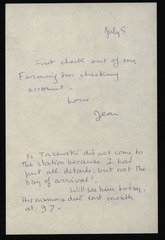 July 5
Sent check out of my
Farmington checking
account.
Love
Jean
Tazewski did not come to
the station because I had
put all details, but not the
day of arrival!
Will see him today.
His mamma died last month
at 97.